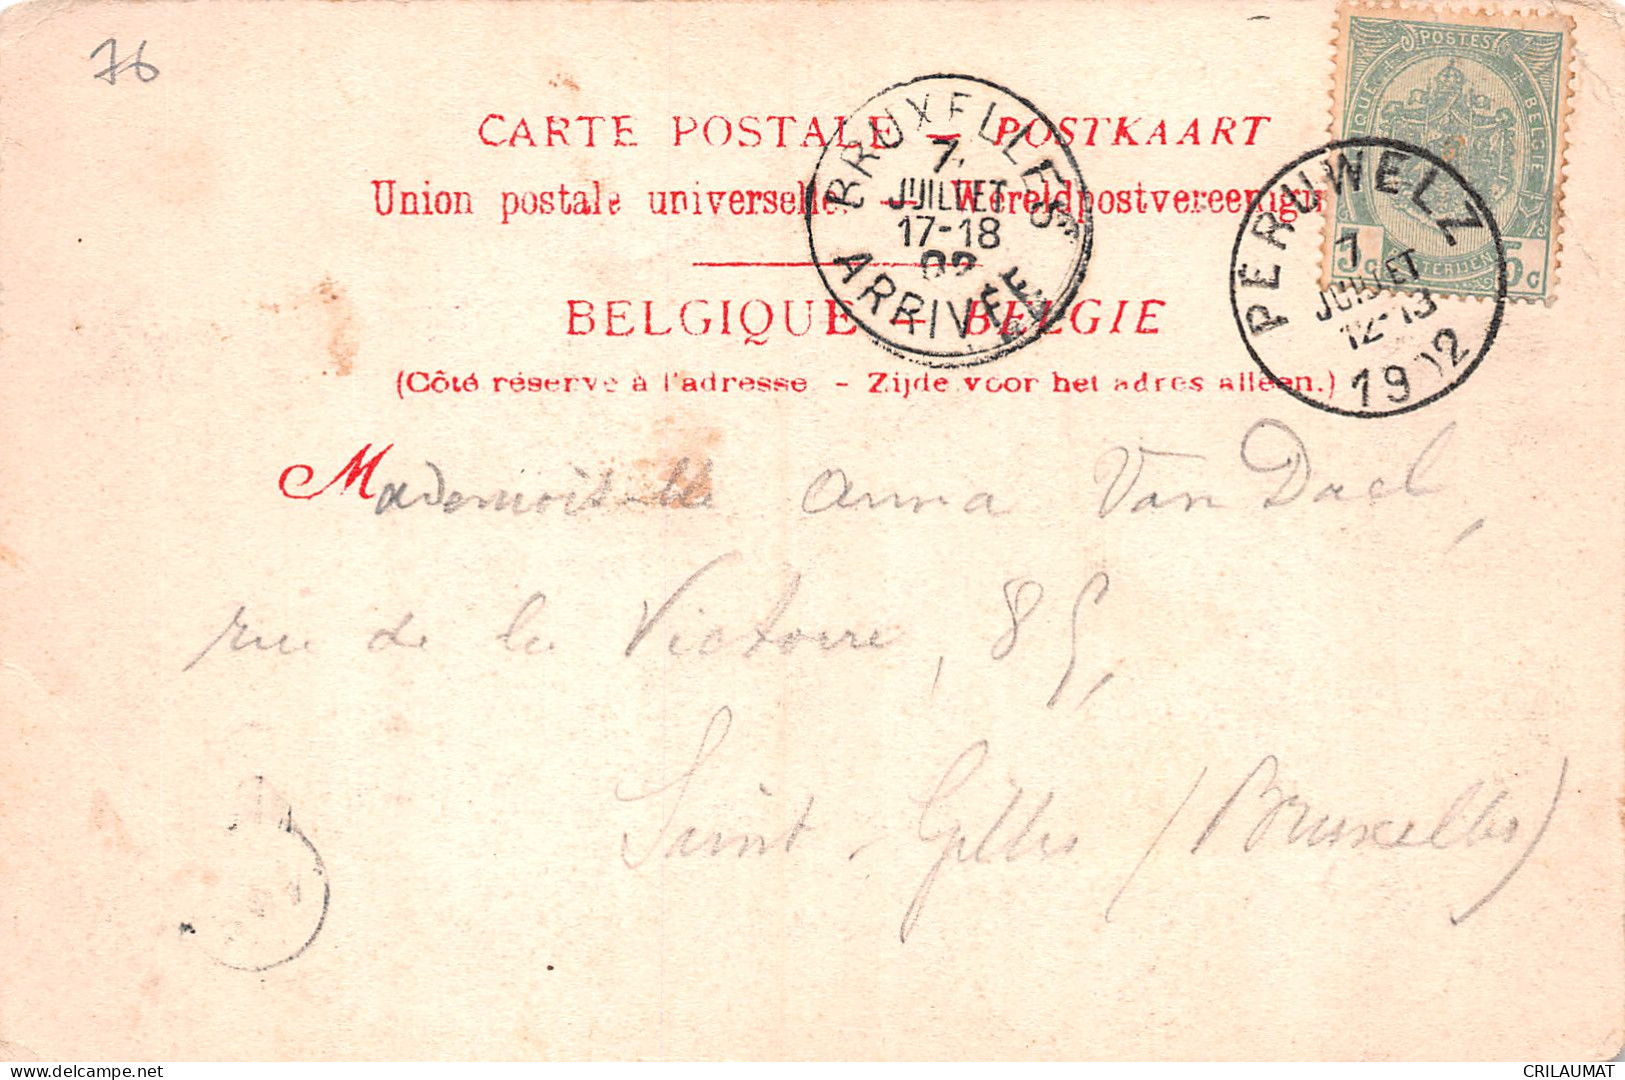 76
CARTE POSTALE — POSTKAART
Union postale universelle. — Wereldpostvereeniging
BELGIQUE — BELGIE
(Côté réservé à l'adresse. - Zijde voor het adres alleen.)
BRUXELLES
7
JUILLET
17-18
02
ARRIVÉE
POSTES
BELGIE
5c 5c
PERUWELZ
7
JUILLET
12-13
1902
Mademoiselle Anna Van Dael,
rue de la Victoire, 85,
Saint-Gilles (Bruxelles)
www.delcampe.net
CRILAUMAT